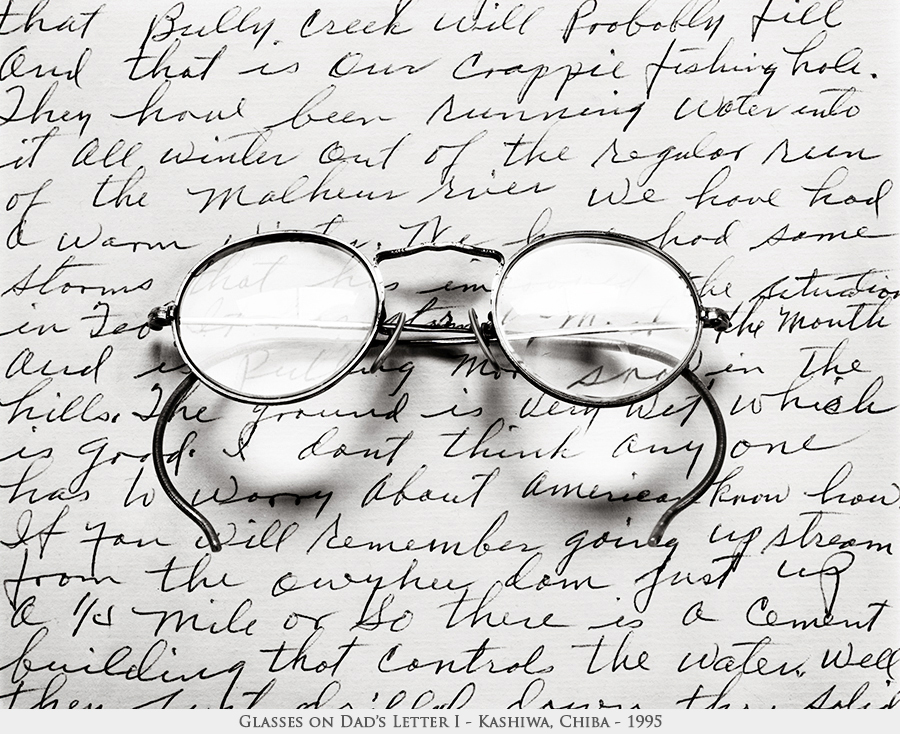 that Bully Creek will Probably fill
And that is our crappie fishing hole.
They have been running water into
it all winter out of the regular run
of the Malheur river we have had
a warm We had some
storms that the situation
in the Month
And is Putting snow in the
hills. The ground is very wet which
is good. I dont think any one
has to worry About American know how
If you will remember going up stream
from the owyhee dam just up
a 1/3 mile or so there is a cement
building that controls the water. Well
they just drilled down thru solid
Glasses on Dad's Letter I - Kashiwa, Chiba - 1995